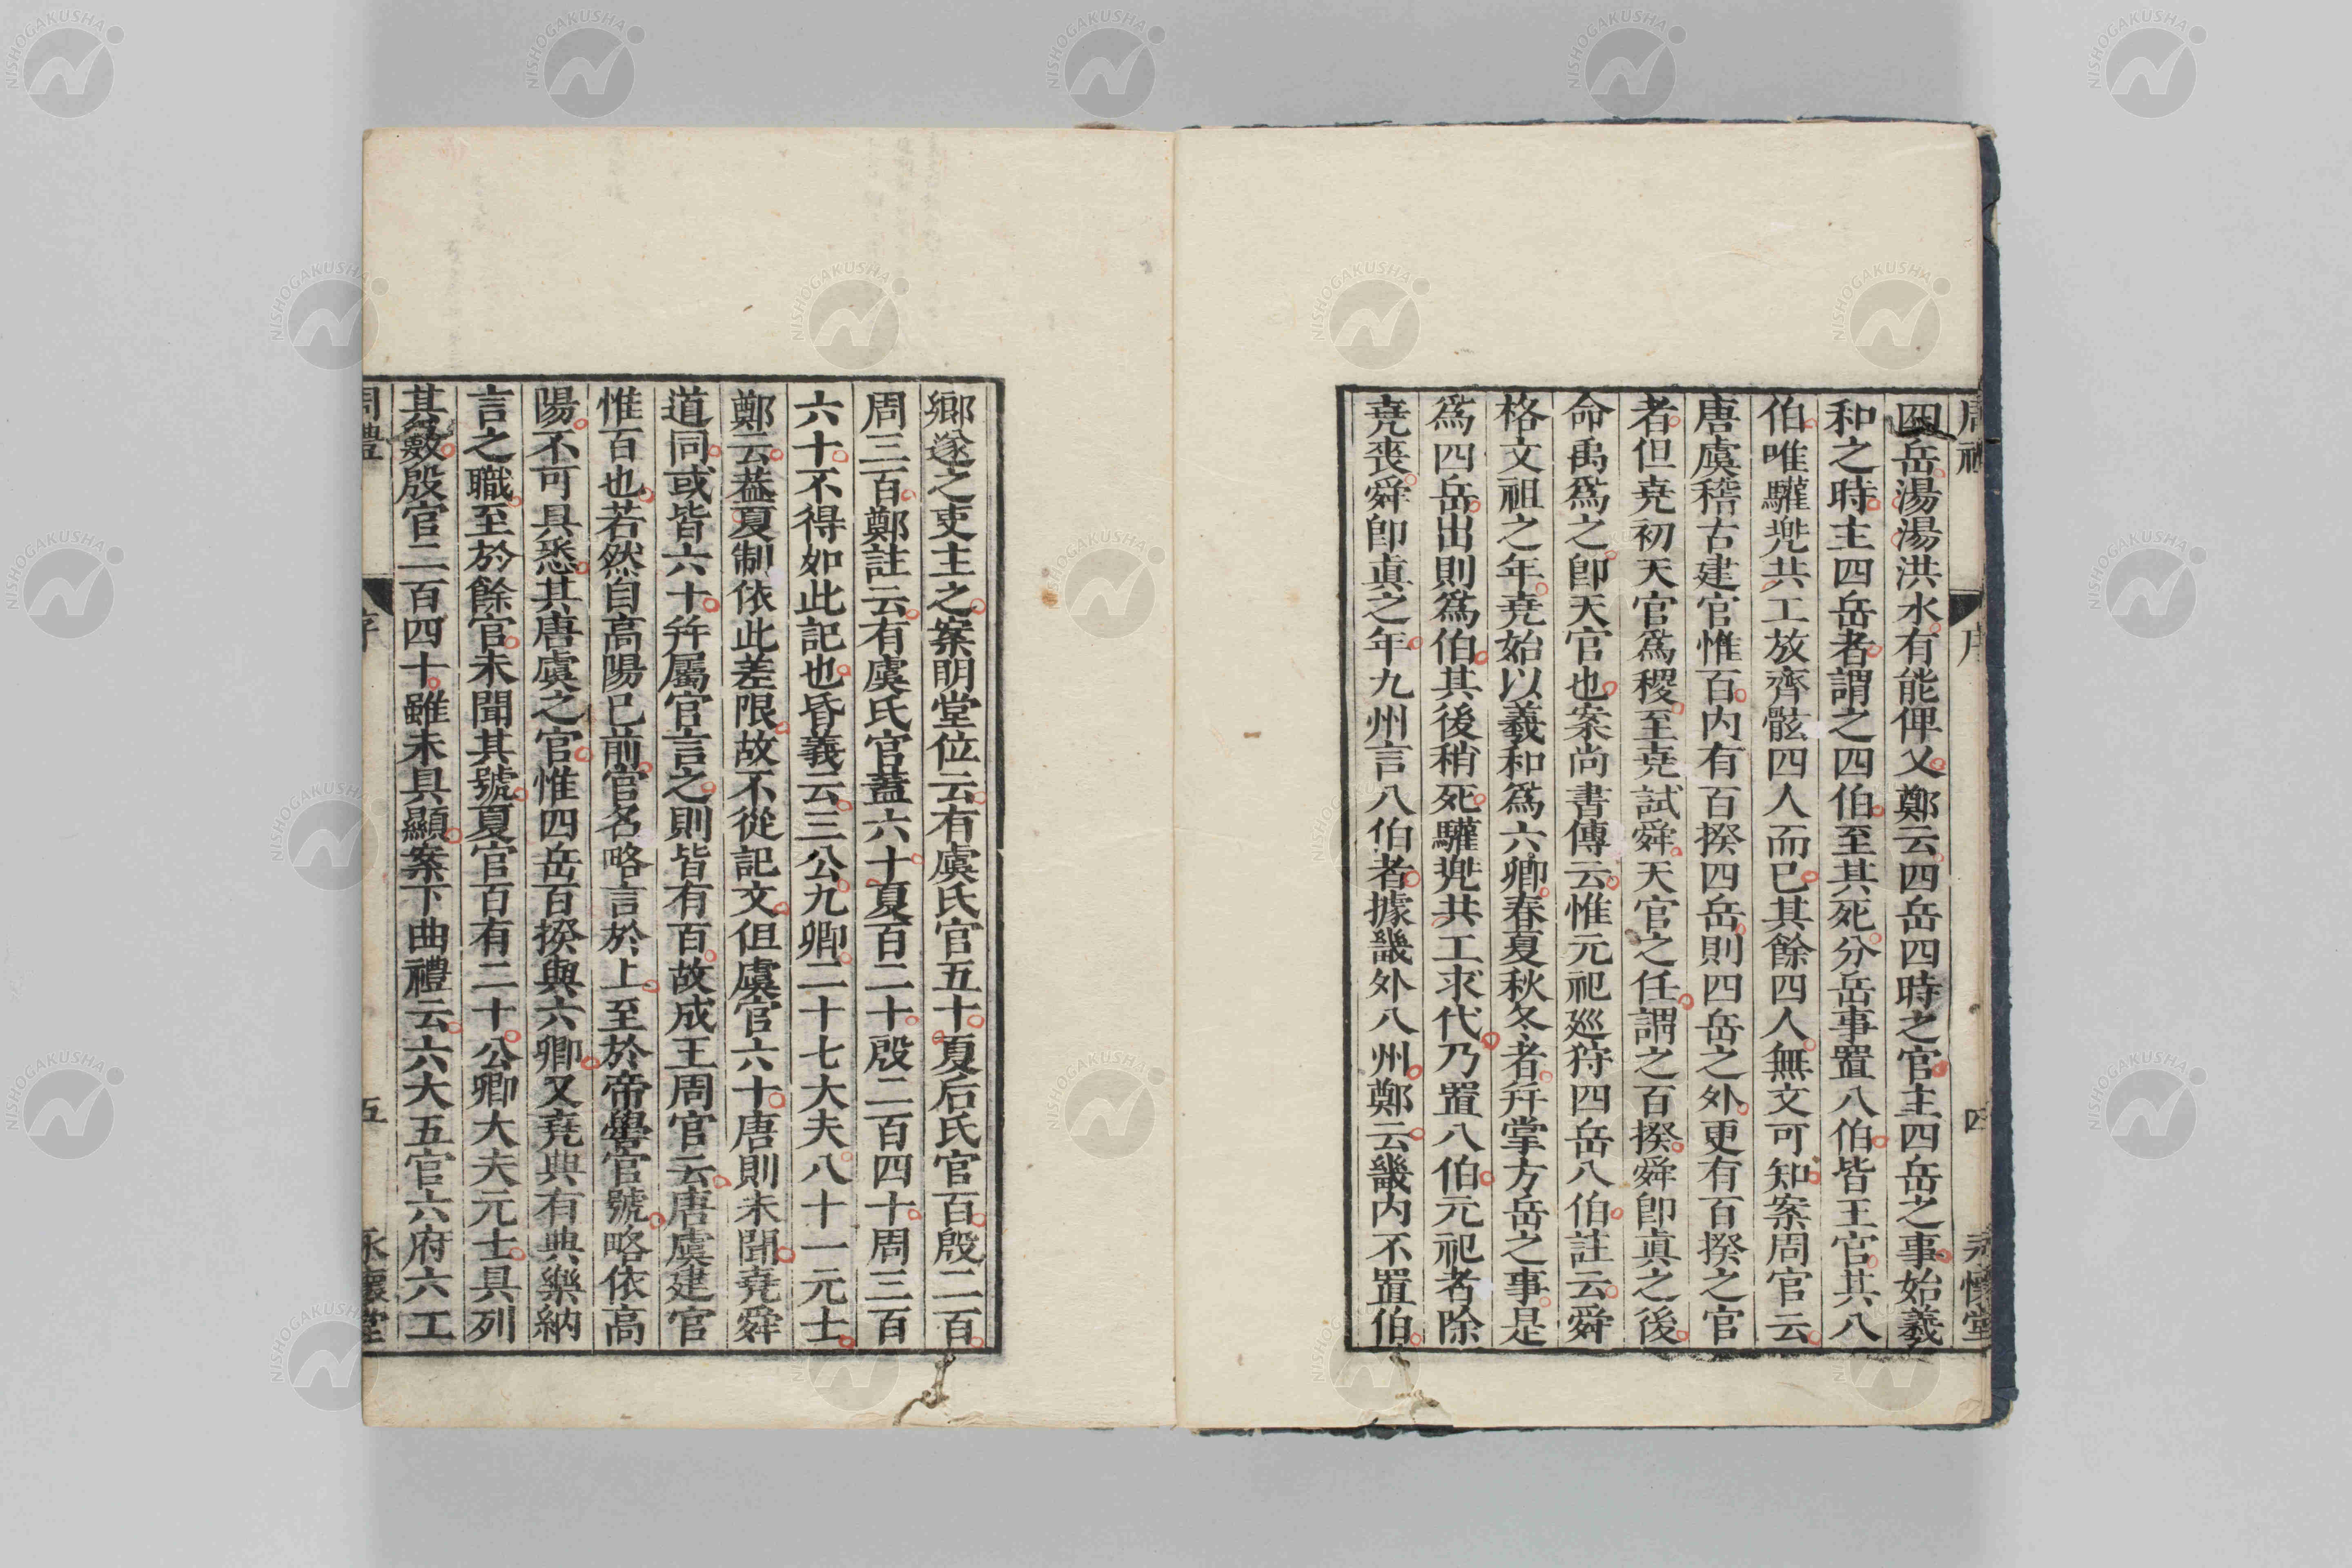 周禮 序 四 永懷堂
四岳湯湯洪水有能俾乂鄭云四岳四時之官主四岳之事始羲
和之時主四岳者謂之四伯至其死分岳事置八伯皆王官其八
伯唯驩兠共工放齊骸四人而已其餘四人無文可知案周官云
唐虞稽古建官惟百内有百揆四岳則四岳之外更有百揆之官
者但堯初天官爲稷至堯試舜天官之任謂之百揆舜卽眞之後
命禹爲之卽天官也案尚書傳云惟元祀廵狩四岳八伯註云舜
格文祖之年堯始以羲和爲六卿春夏秋冬者幷掌方岳之事是
爲四岳出則爲伯其後稍死驩兠共工求代乃置八伯元祀者除
堯喪舜卽眞之年九州言八伯者據畿外八州鄭云畿内不置伯
鄉遂之吏主之案明堂位云有虞氏官五十夏后氏官百殷二百
周三百鄭註云有虞氏官蓋六十夏百二十殷二百四十周三百
六十不得如此記也昏義云三公九卿二十七大夫八十一元士
鄭云葢夏制依此差限故不從記文但虞官六十唐則未聞堯舜
道同或皆六十幷屬官言之則皆有百故成王周官云唐虞建官
惟百也若然自高陽已前官名略言於上至於帝嚳官號略依高
陽不可具悉其唐虞之官惟四岳百揆與六卿又堯典有典樂納
言之職至於餘官未聞其號夏官百有二十公卿大夫元士具列
其數殷官二百四十雖未具顯案下曲禮云六大五官六府六工
周禮 序 五 永懷堂
NISHOGAKUSHA